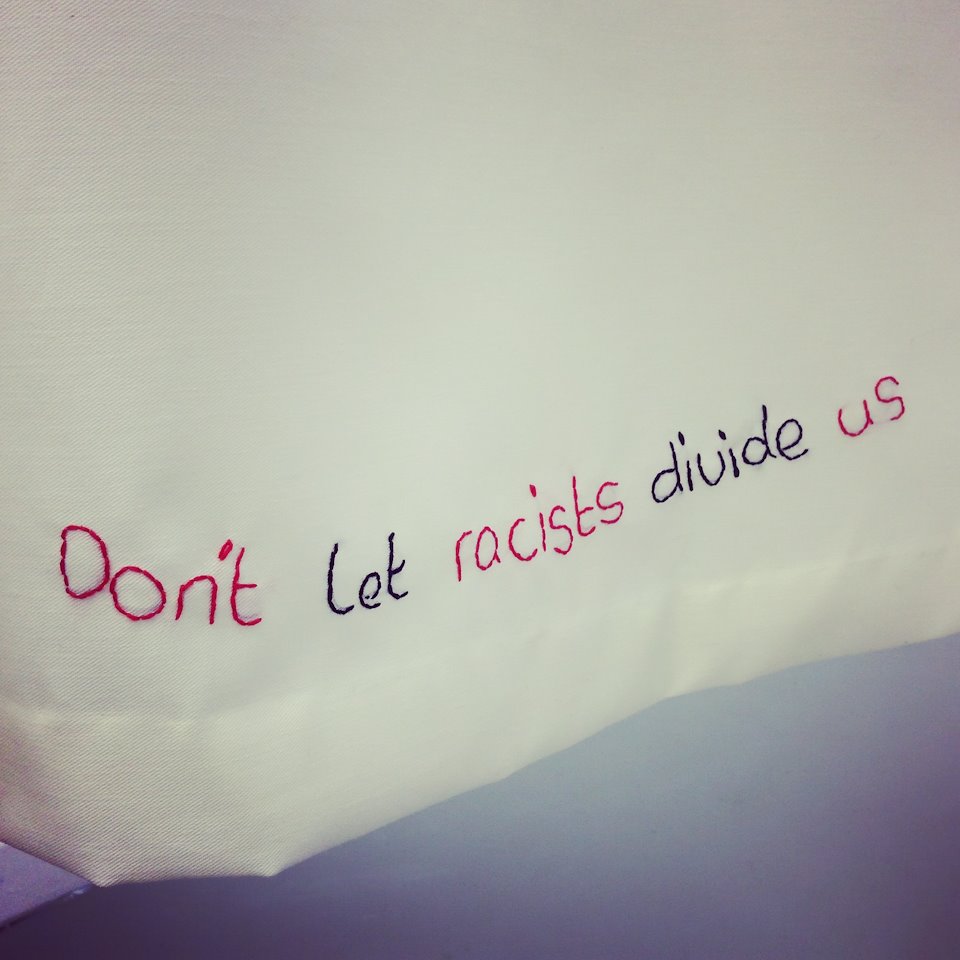 Don't let racists divide us